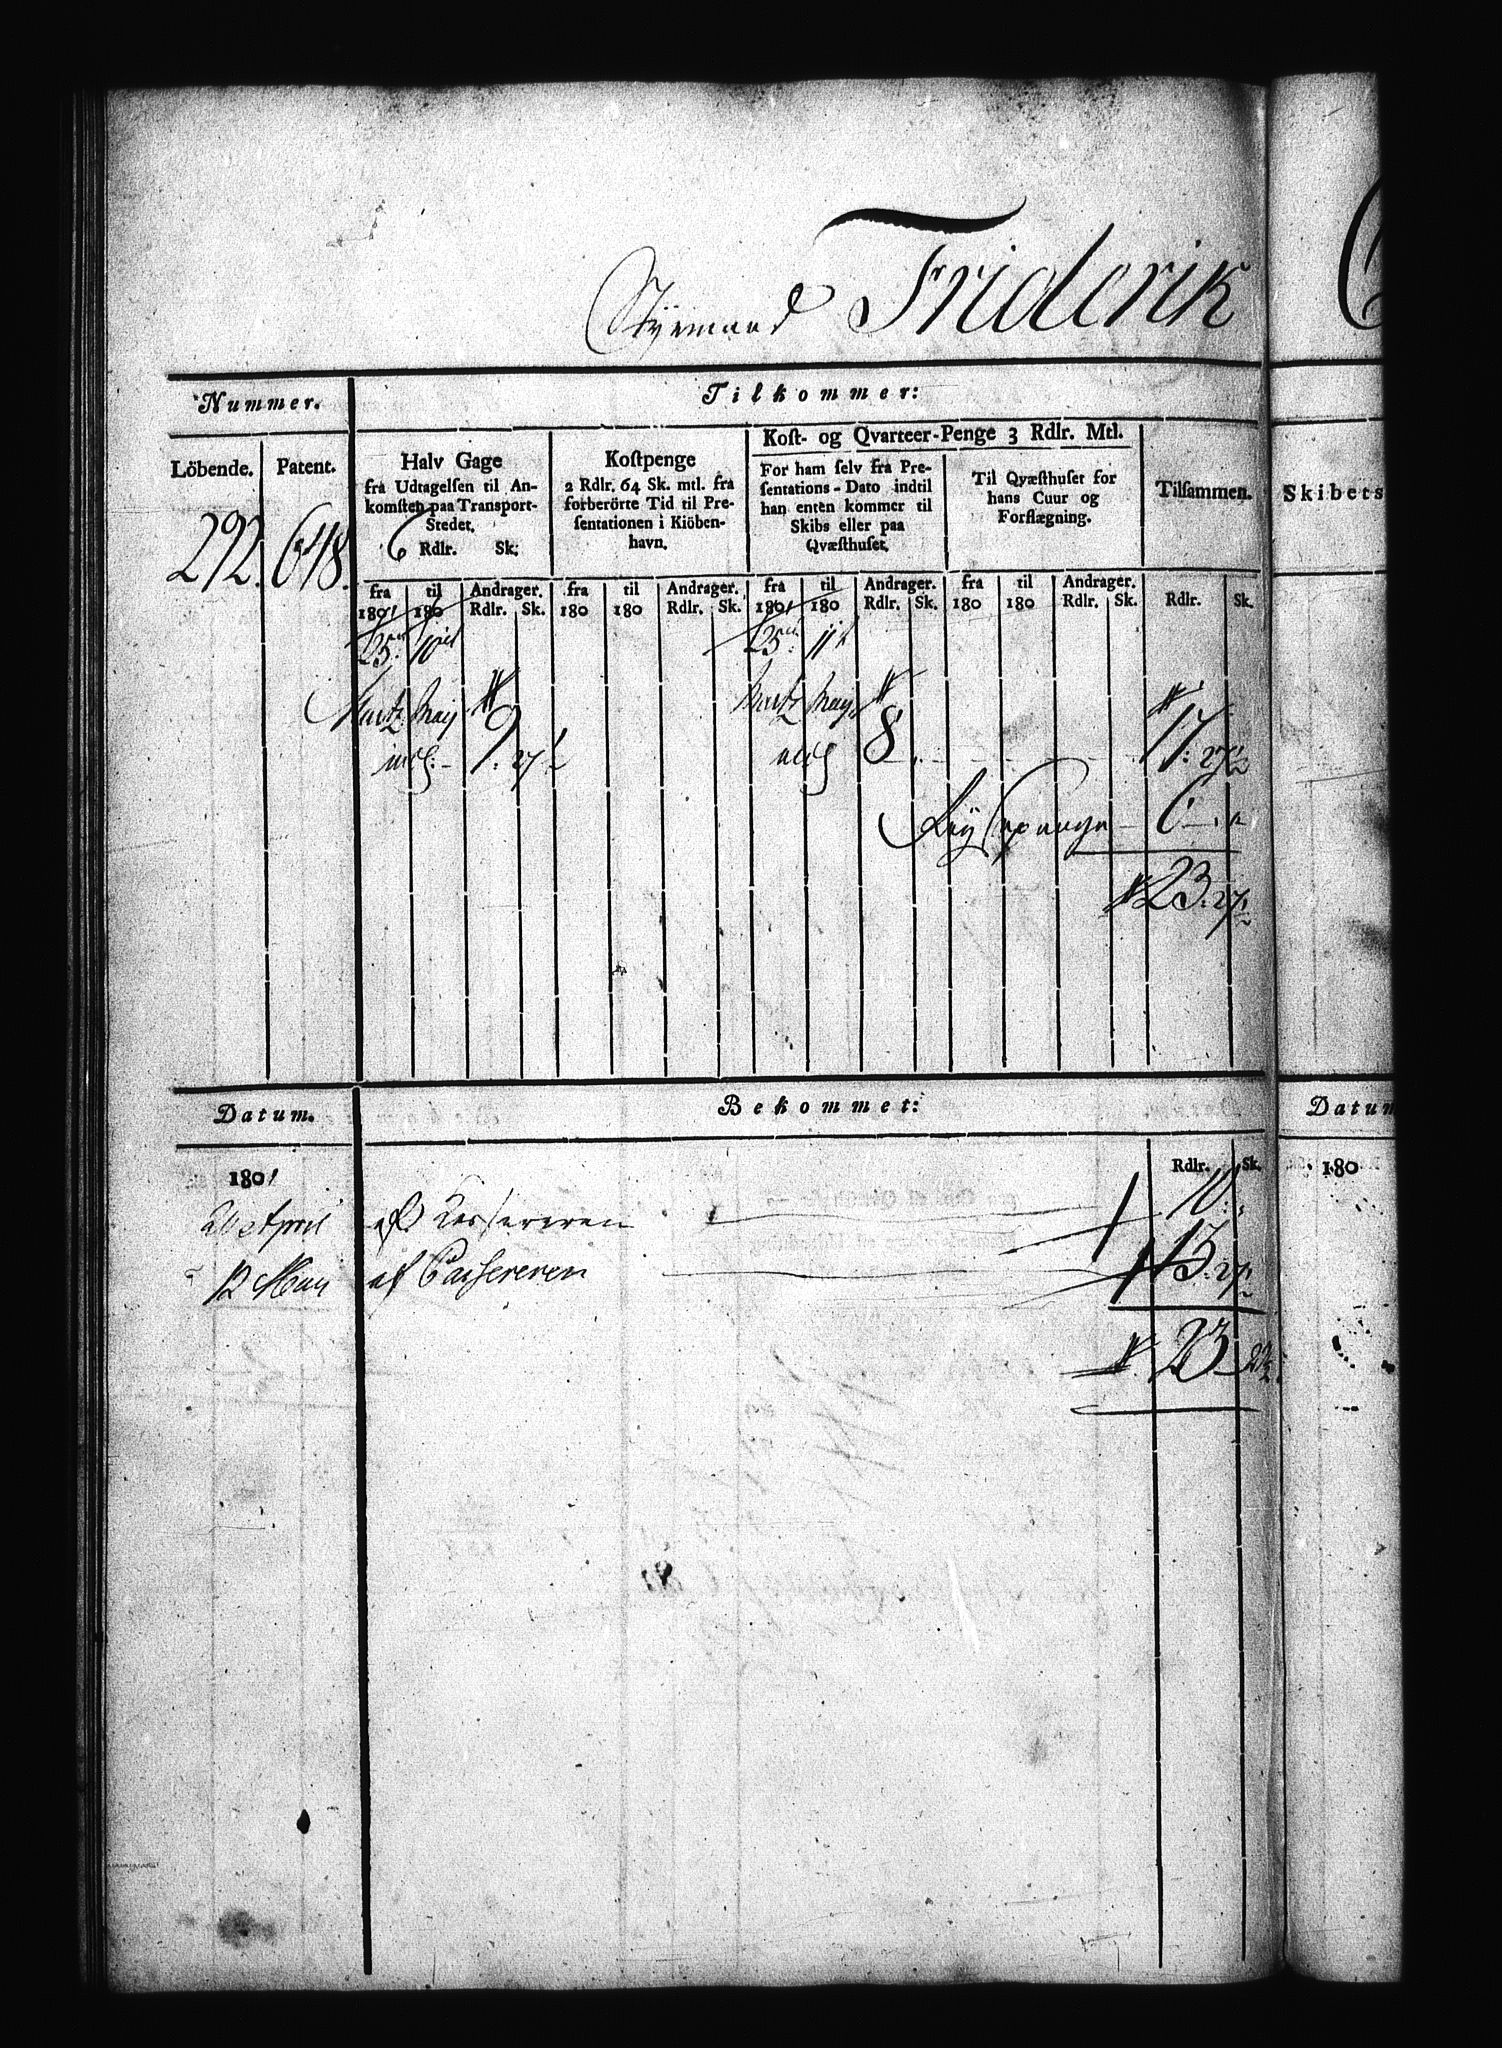 Styrmand Friderik
Nummer.
Tilkommer:
Löbende.
Patent.
Halv Gage
fra Udtagelsen til An-
komsten paa Transport-
Stedet.
6 Rdlr. Sk.
Kostpenge
2 Rdlr. 64 Sk. mtl. fra
forberörte Tid til Pre-
sentationen i Kiöben-
havn.
Kost- og Qvarteer-Penge 3 Rdlr. Mtl.
For ham selv fra Pre-
sentations-Dato indtil
han enten kommer til
Skibs eller paa
Qvæsthuset.
Til Qvæsthuset for
hans Cuur og
Forflægning.
Tilsammen.
Skibets
292. 648.
fra 1801 til 180 Andrager. Rdlr. Sk.
fra 180 til 180 Andrager. Rdlr. Sk.
fra 1801 til 180 Andrager. Rdlr. Sk.
fra 180 til 180 Andrager. Rdlr. Sk.
Rdlr. Sk.
25 10 25 11
Martz May 9: 27½ Martz May 8 17: 27½
incl: incl
Reysepenge 6
23: 27½
Datum.
Bekommet:
Datum
1801 Rdlr. Sk.
180
April af Cassereren 10
12 May af Cassereren 13: 27½
23